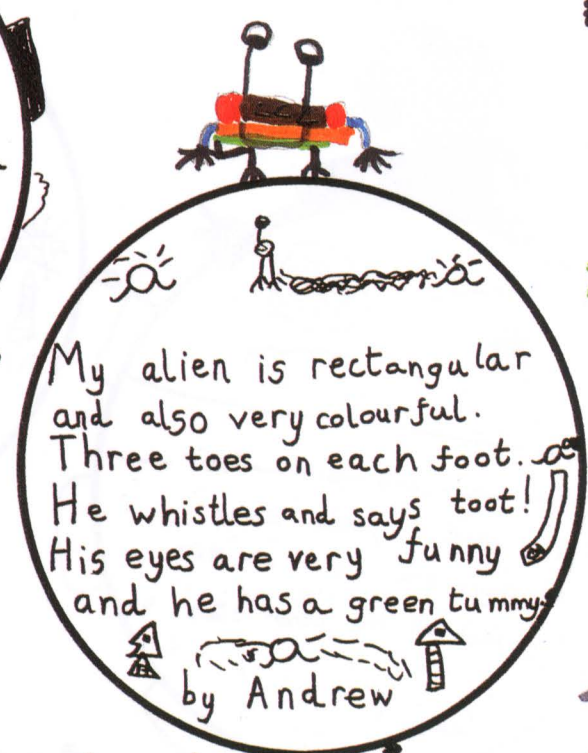 My alien is rectangular
and also very colourful.
Three toes on each foot.
He whistles and says toot!
His eyes are very funny
and he has a green tummy.
by Andrew